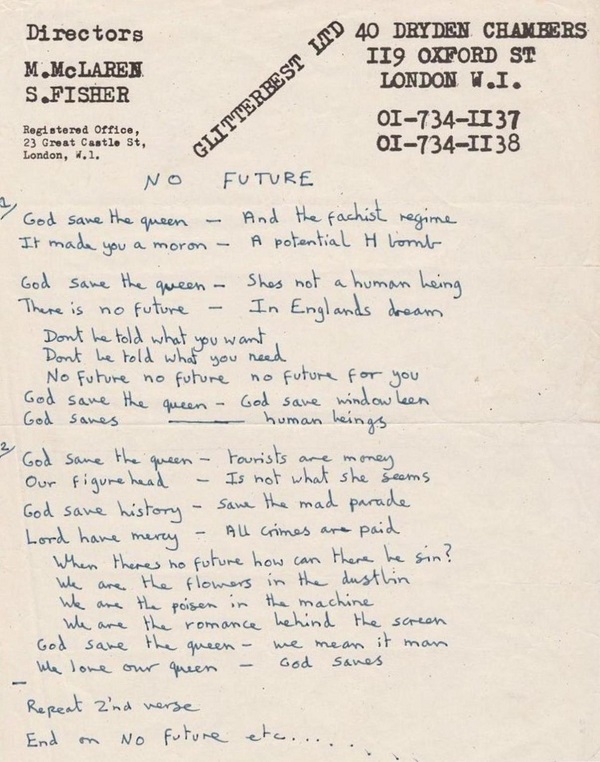 Directors
M.McLAREN
S.FISHER
Registered Office,
23 Great Castle St,
London, W.1.
GLITTERBEST LTD
40 DRYDEN CHAMBERS
II9 OXFORD ST
LONDON W.I.
OI-734-II37
OI-734-II38
NO FUTURE
1/
God save the queen — And the fachist regime
It made you a moron — A potential H bomb
God save the queen — Shes not a human being
There is no future — In Englands dream
Dont be told what you want
Dont be told what you need
No future no future no future for you
God save the queen — God save windowleen
God saves ——— human beings
2/
God save the queen — tourists are money
Our figurehead — Is not what she seems
God save history — save the mad parade
Lord have mercy — All crimes are paid
When theres no future how can there be sin?
We are the flowers in the dustbin
We are the poisen in the machine
We are the romance behind the screen
God save the queen — we mean it man
We love our queen — God saves
Repeat 2'nd verse
End on No Future etc......